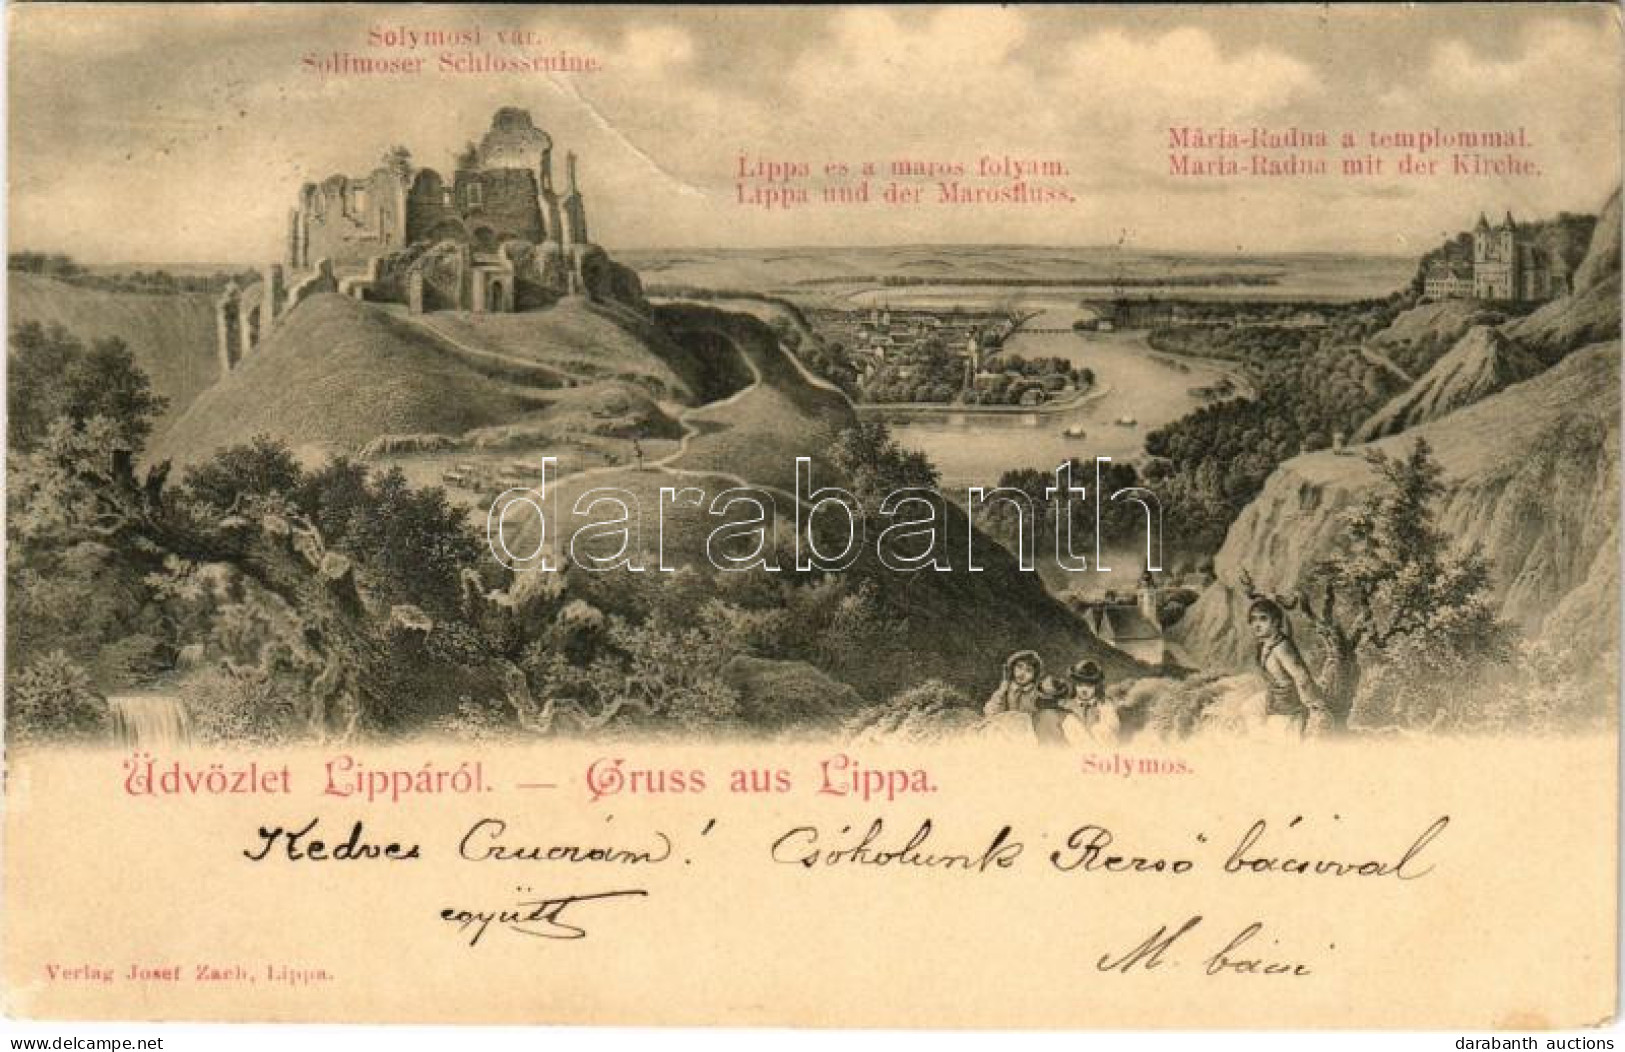 Solymosi vár.
Solimoser Schlossruine.
Lippa es a maros folyam.
Lippa und der Marosfluss.
Mária-Radna a templommal.
Maria-Radna mit der Kirche.
darabanth
Üdvözlet Lippáról. — Gruss aus Lippa.
Solymos.
Kedves Czuczám! Csókolunk Rezső bácsival
együtt
M. bácsi
Verlag Josef Zach, Lippa.
delcampe.net
darabanth auctions